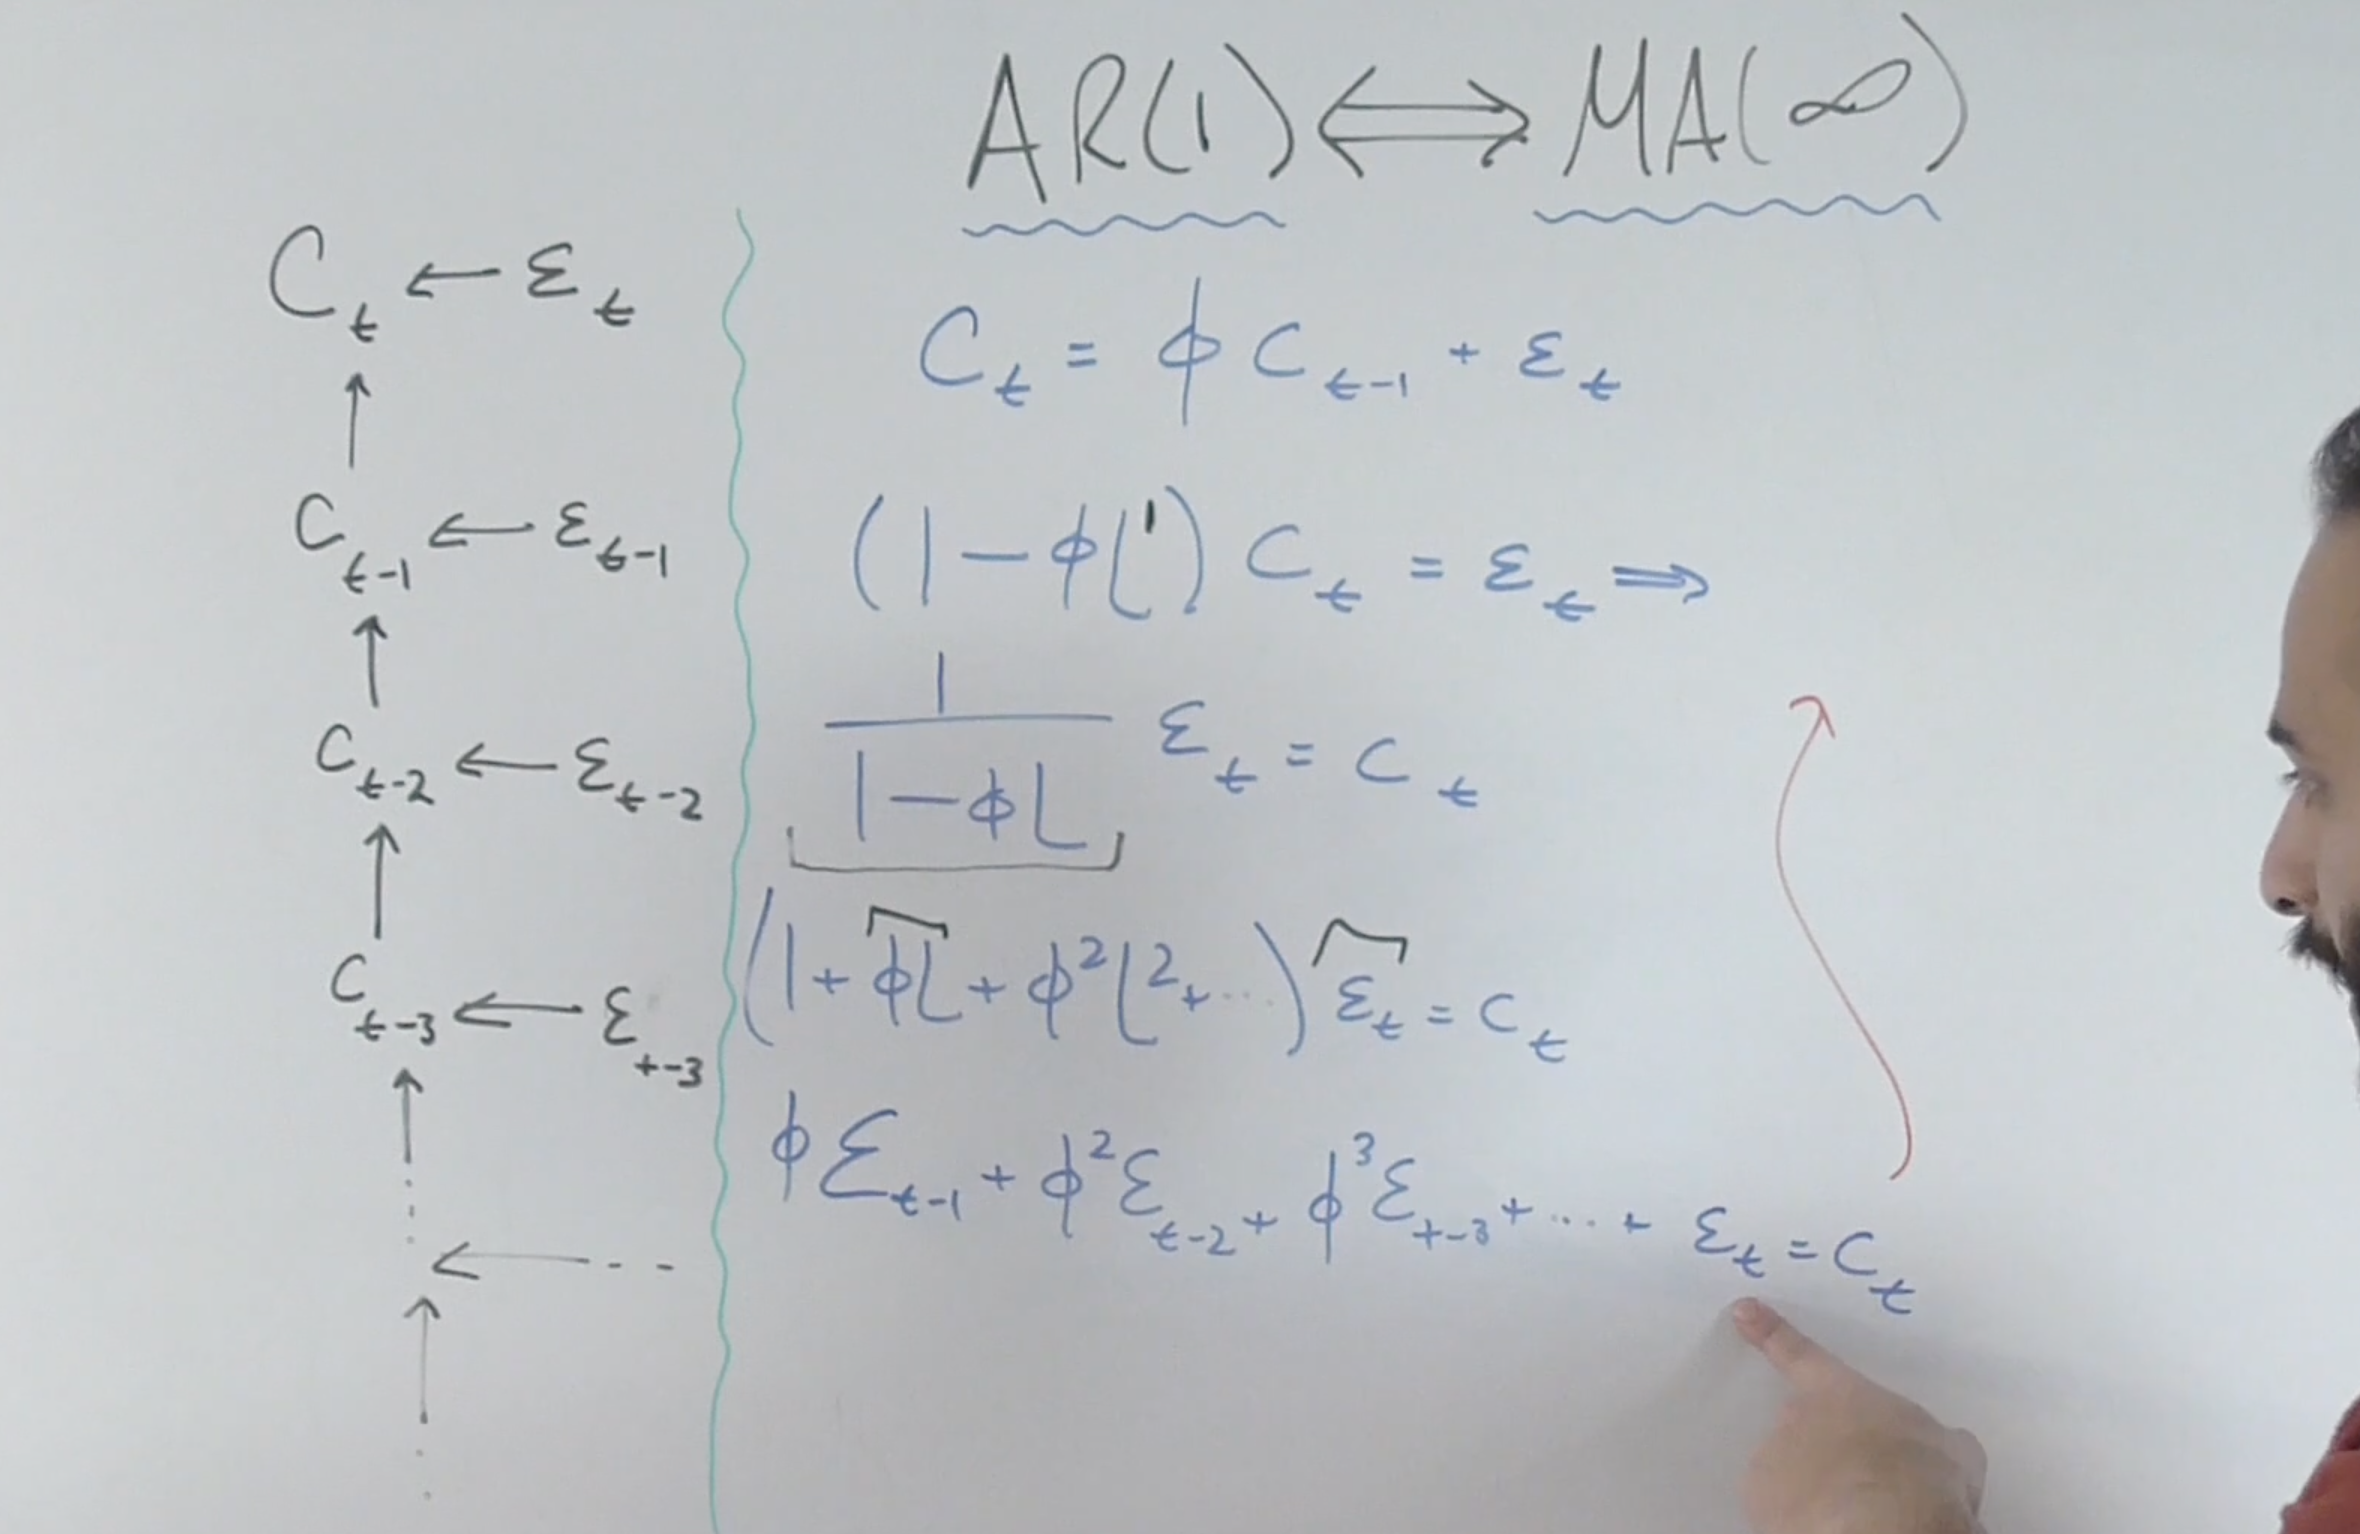 AR(1) ⟺ MA(∞)
C_t ← ε_t
↑
C_{t-1} ← ε_{t-1}
↑
C_{t-2} ← ε_{t-2}
↑
C_{t-3} ← ε_{t-3}
↑
⋮ ← - -
↑
⋮
C_t = ϕ C_{t-1} + ε_t
(1 - ϕL^1) C_t = ε_t ⇒
\frac{1}{1 - ϕL} ε_t = C_t
(1 + ϕL + ϕ^2 L^2 + ...) ε_t = C_t
ϕε_{t-1} + ϕ^2 ε_{t-2} + ϕ^3 ε_{t-3} + ... + ε_t = C_t